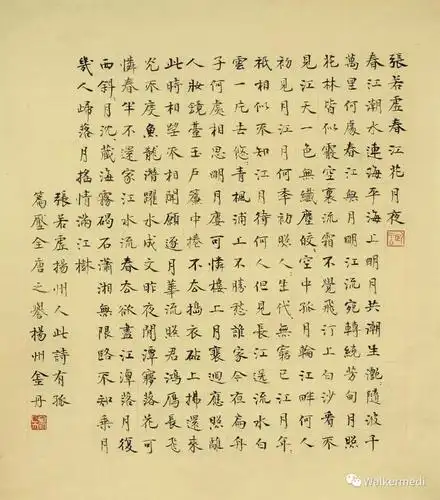 張若虛春江花月夜
春江潮水連海平海上明月共潮生灩隨波千
萬里何處春江無月明江流宛轉繞芳甸月照
花林皆似霰空裏流霜不覺飛汀上白沙看不
見江天一色無纖塵皎空中孤月輪江畔何人
初見月江月何季初照人生代無窮已江月年
祇相似不知江月待何人但見長江送流水白
雲一片去悠青楓浦上不勝愁誰家今夜扁舟
子何處相思明月樓可憐樓上月裵迴應照離
人妝鏡臺玉戶簾中捲不去搗衣砧上拂還來
此時相望不相聞願逐月華流照君鴻雁長飛
光不度魚龍潛躍水成文昨夜閒潭夢落花可
憐春半不還家江水流春去欲盡江潭落月復
西斜月沉藏海霧碣石瀟湘無限路不知乘月
幾人歸落月搖情滿江樹
張若虛揚州人此詩有孤
篇壓全唐之譽揚州金丹
Walkermedi